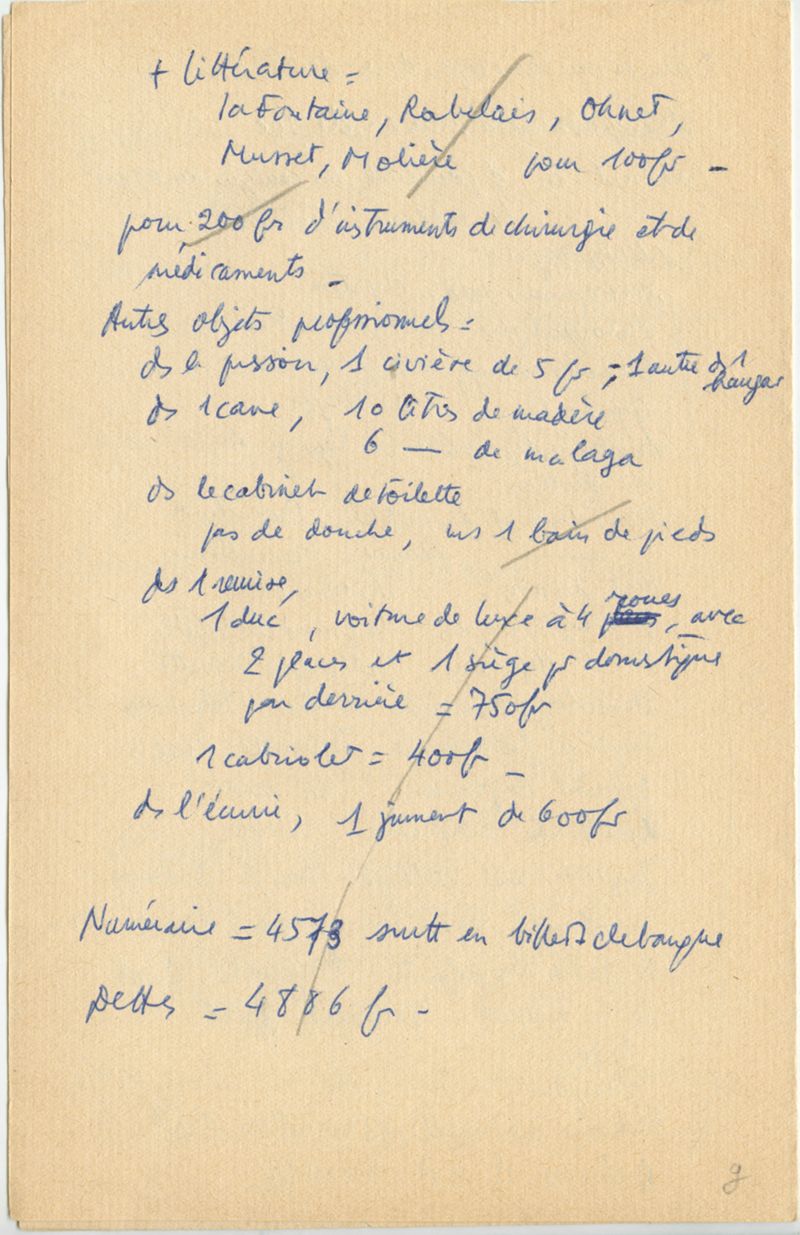 + littérature =
la Fontaine, Rabelais, Ohnet,
Musset, Molière pour 100fr –
pour 200 fr d'instruments de chirurgie et de
médicaments –
Autres objets professionnels =
ds le pression, 1 civière de 5 fr ; 1 autre ds 1
hangar
ds 1 cave, 10 litres de madère
6 — de malaga
ds le cabinet de toilette
pas de douche, ms 1 bain de pieds
ds 1 remise,
1 duc, voiture de luxe à 4 roues, avec
2 places et 1 siège pr domestique
par derrière = 750fr
1 cabriolet = 400fr –
ds l'écurie, 1 jument de 600fr
Numéraire = 4573 surtt en billets de banque
Dettes = 4886 fr –
g